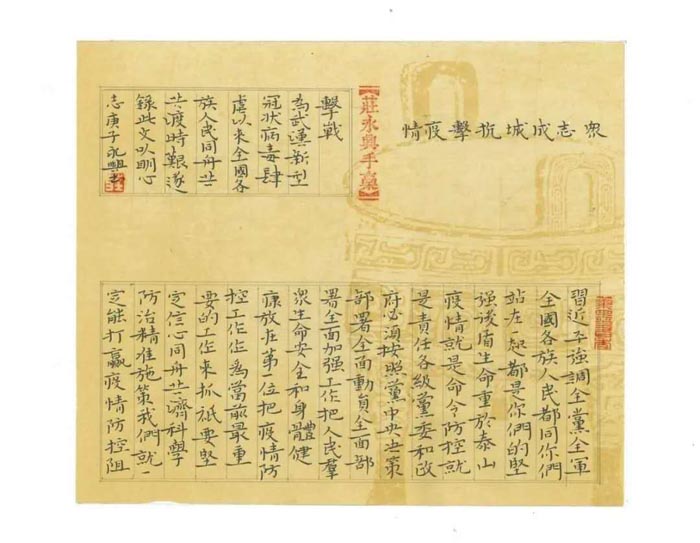 眾志成城抗擊疫情
習近平強調全黨全軍
全國各族人民都同你們
站在一起都是你們的堅
強後盾生命重於泰山
疫情就是命令防控就
是責任各級黨委和政
府必須按照黨中央決策
部署全面動員全面部
署全面加强工作把人民羣
眾生命安全和身體健
康放在第一位把疫情防
控工作作為當前最重
要的工作來抓祇要堅
定信心同舟共濟科學
防治精准施策我們就一
定能打贏疫情防控阻
【莊永興手稾】
擊戰
為武漢新型
冠狀病毒肆
虐以來全國各
族人民同舟共
共渡時艱遂
錄此文以明心
志庚子永興書